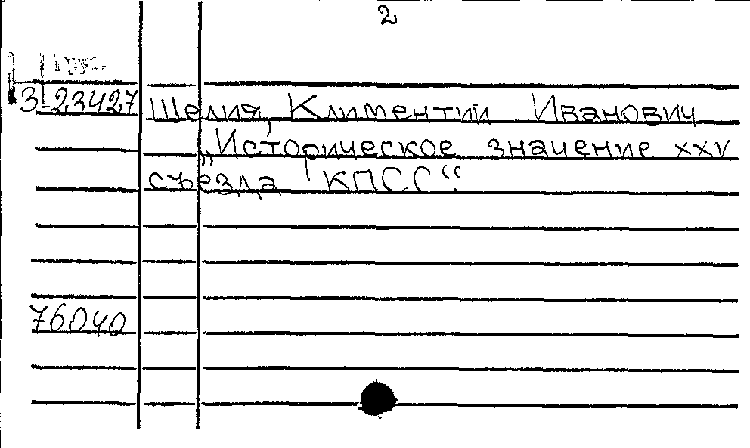 2
3-23427 Шелия, Климентий Иванович
„Историческое значение XXV
съезда КПСС“.
76040